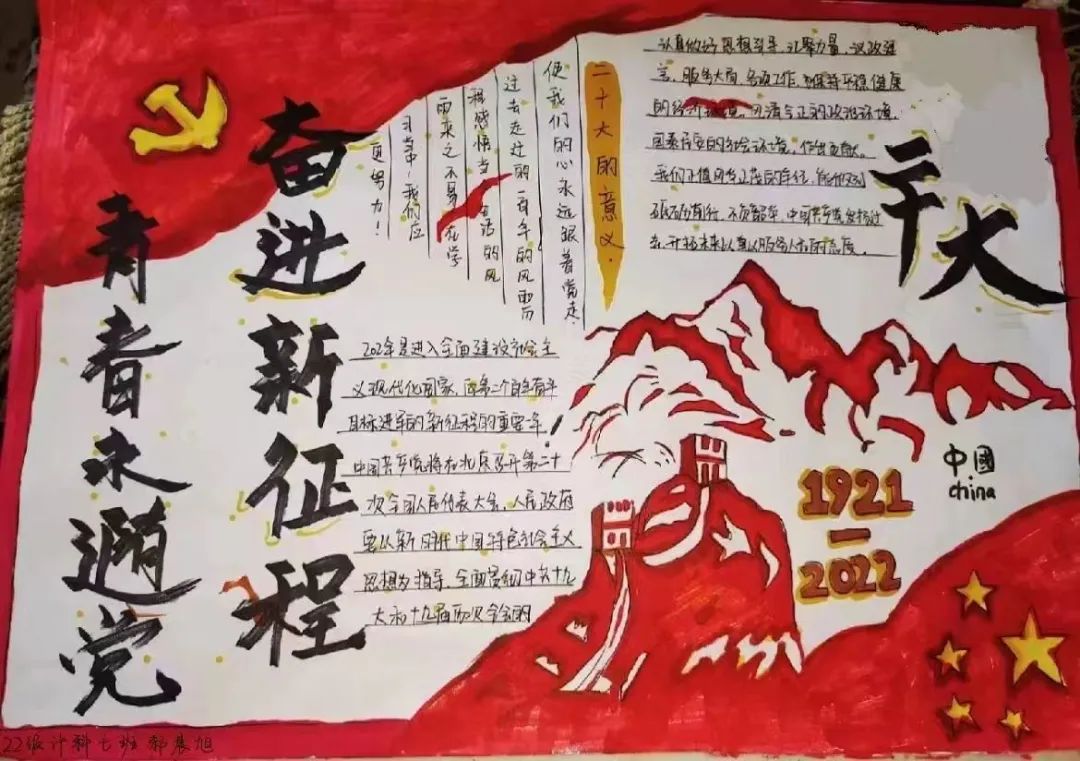 奋进新征程
青春永随党
二十大的意义.
使我们的心永远跟着党走.
过去走过的百年的风雨
程感悟当生活的风
雨来之不易在学
习当中!我们应
更努力!
认真做好思想引导,汇聚力量、议政建
言、服务大局各项工作,为维持平稳健康
的经济环境、风清气正的政治环境、
国泰民安的社会环境,作出贡献。
我们正值风华正茂的年纪,
砥砺前行,不负韶华,中国共产党
去,开拓未来以真以服务人民的态度。
二十大
2022年是进入全面建设社会主
义现代化国家、向第二个百年奋斗
目标进军的新征程的重要一年,
中国共产党将在北京召开第二十
次全国人民代表大会、人民政府
要以新时代中国特色社会主义
思想为指导,全面贯彻中共十九
大和十九届历次全会的
1921
—
2022
中國
China
22级计科七班 郭晨旭